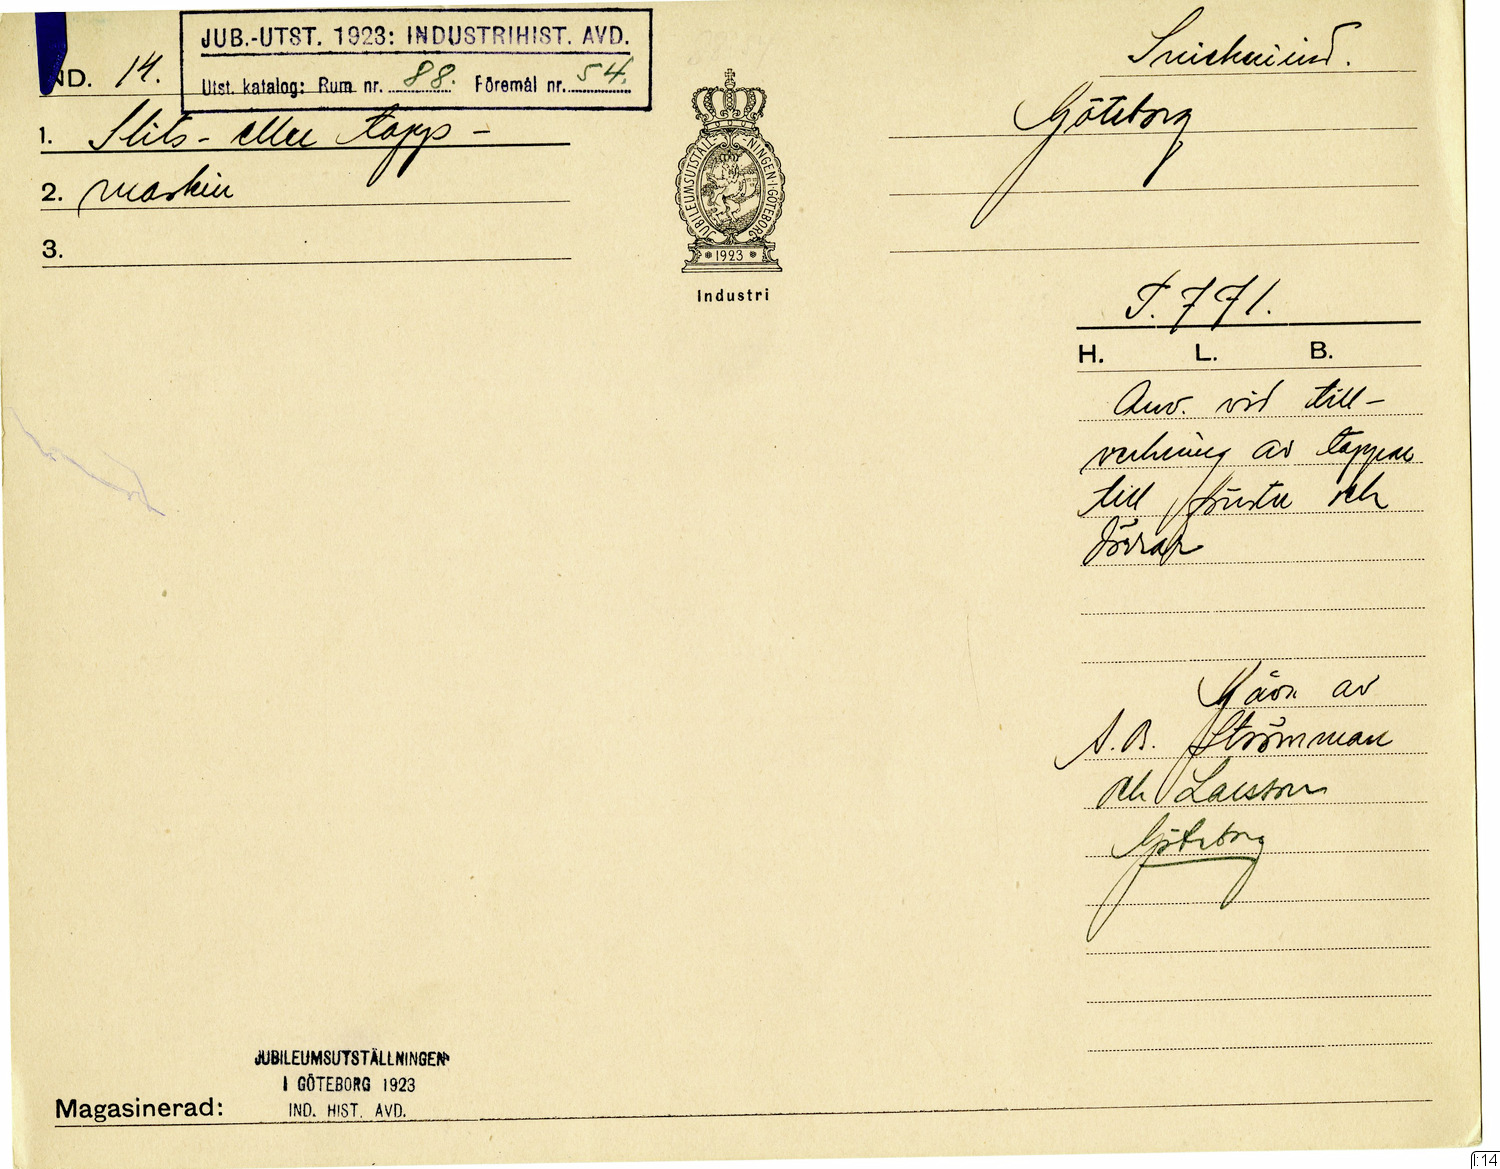 JUB.-UTST. 1923: INDUSTRIHIST. AVD.
Utst. katalog: Rum nr. 88. Föremål nr. 54.
IND. 14.
1. Slits- eller tapp-
2. maskin
3.
JUBILEUMSUTSTÄLLNINGEN·I·GÖTEBORG
* 1923 *
Industri
Snickeriind.
Göteborg
T. 771.
H. L. B.
Anv. vid till-
verkning av tappar
till fönster och
dörrar
Gåva av
A.B. Strömman
och Larsson
Göteborg
JUBILEUMSUTSTÄLLNINGEN
I GÖTEBORG 1923
IND. HIST. AVD.
Magasinerad:
I:14